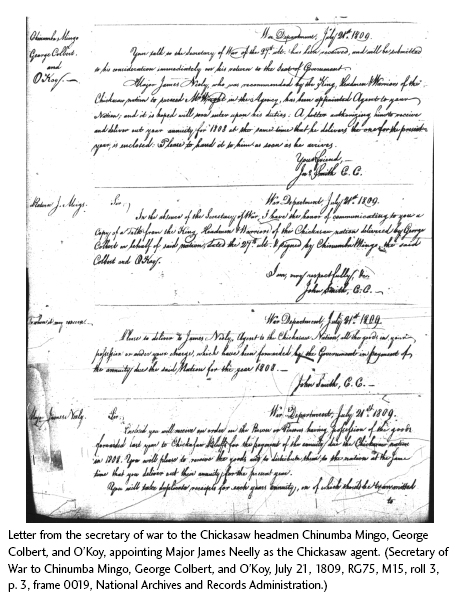 Chinumba Mingo
George Colbert
and
O'Koy
War Department, July 21st 1809.
Your talk to the Secretary of War of the 27th ult. has been received, and will be submitted
to his consideration immediately on his return to the Seat of Government.
Major James Neely, who was recommended by the King, Headmen & Warriors of the
Chickasaw nation to succeed in the Agency, has been appointed Agent to your
Nation, and it is hoped will soon enter upon his duties. A letter authorizing him to receive
and deliver out your annuity for 1808 at the same time that he delivers the one for the present
year, is enclosed. Please to hand it to him as soon as he arrives.
Your friend,
Jno. Smith, C.C.
J. Meigs.
Sir,
War Department, July 21st 1809.
In the absence of the Secretary of War, I have the honor of communicating to you a
copy of a from the King, Headmen & Warriors of the Chickasaw nation delivered by George
Colbert in behalf of said nation, dated the 27th ult. & signed by Chinumba Mingo, the said
Colbert and O'Koy.
I am, very respectfully, &c.
John Smith, C.C.
War Department, July 21st 1809.
Please to deliver to James Neely, Agent to the Chickasaw Nation, all the goods in your
possession or under your charge, which have been forwarded by the Government in payment of
the annuity due the said Nation for the year 1808.
John Smith, C.C.
Major James Neely.
Sir,
War Department, July 21st 1809.
Enclosed you will receive an order on the Person or Persons having possession of the goods
forwarded last year to Chickasaw Bluffs for the payment of the annuity due the Chickasaw nation
in 1808. You will please to receive the goods and to distribute them to the nation at the same
time that you deliver out their annuity for the present year.
You will take duplicate receipts for each years annuity, one of which should be transmitted
to
Letter from the secretary of war to the Chickasaw headmen Chinumba Mingo, George
Colbert, and O'Koy, appointing Major James Neelly as the Chickasaw agent. (Secretary of
War to Chinumba Mingo, George Colbert, and O'Koy, July 21, 1809, RG75, M15, roll 3,
p. 3, frame 0019, National Archives and Records Administration.)